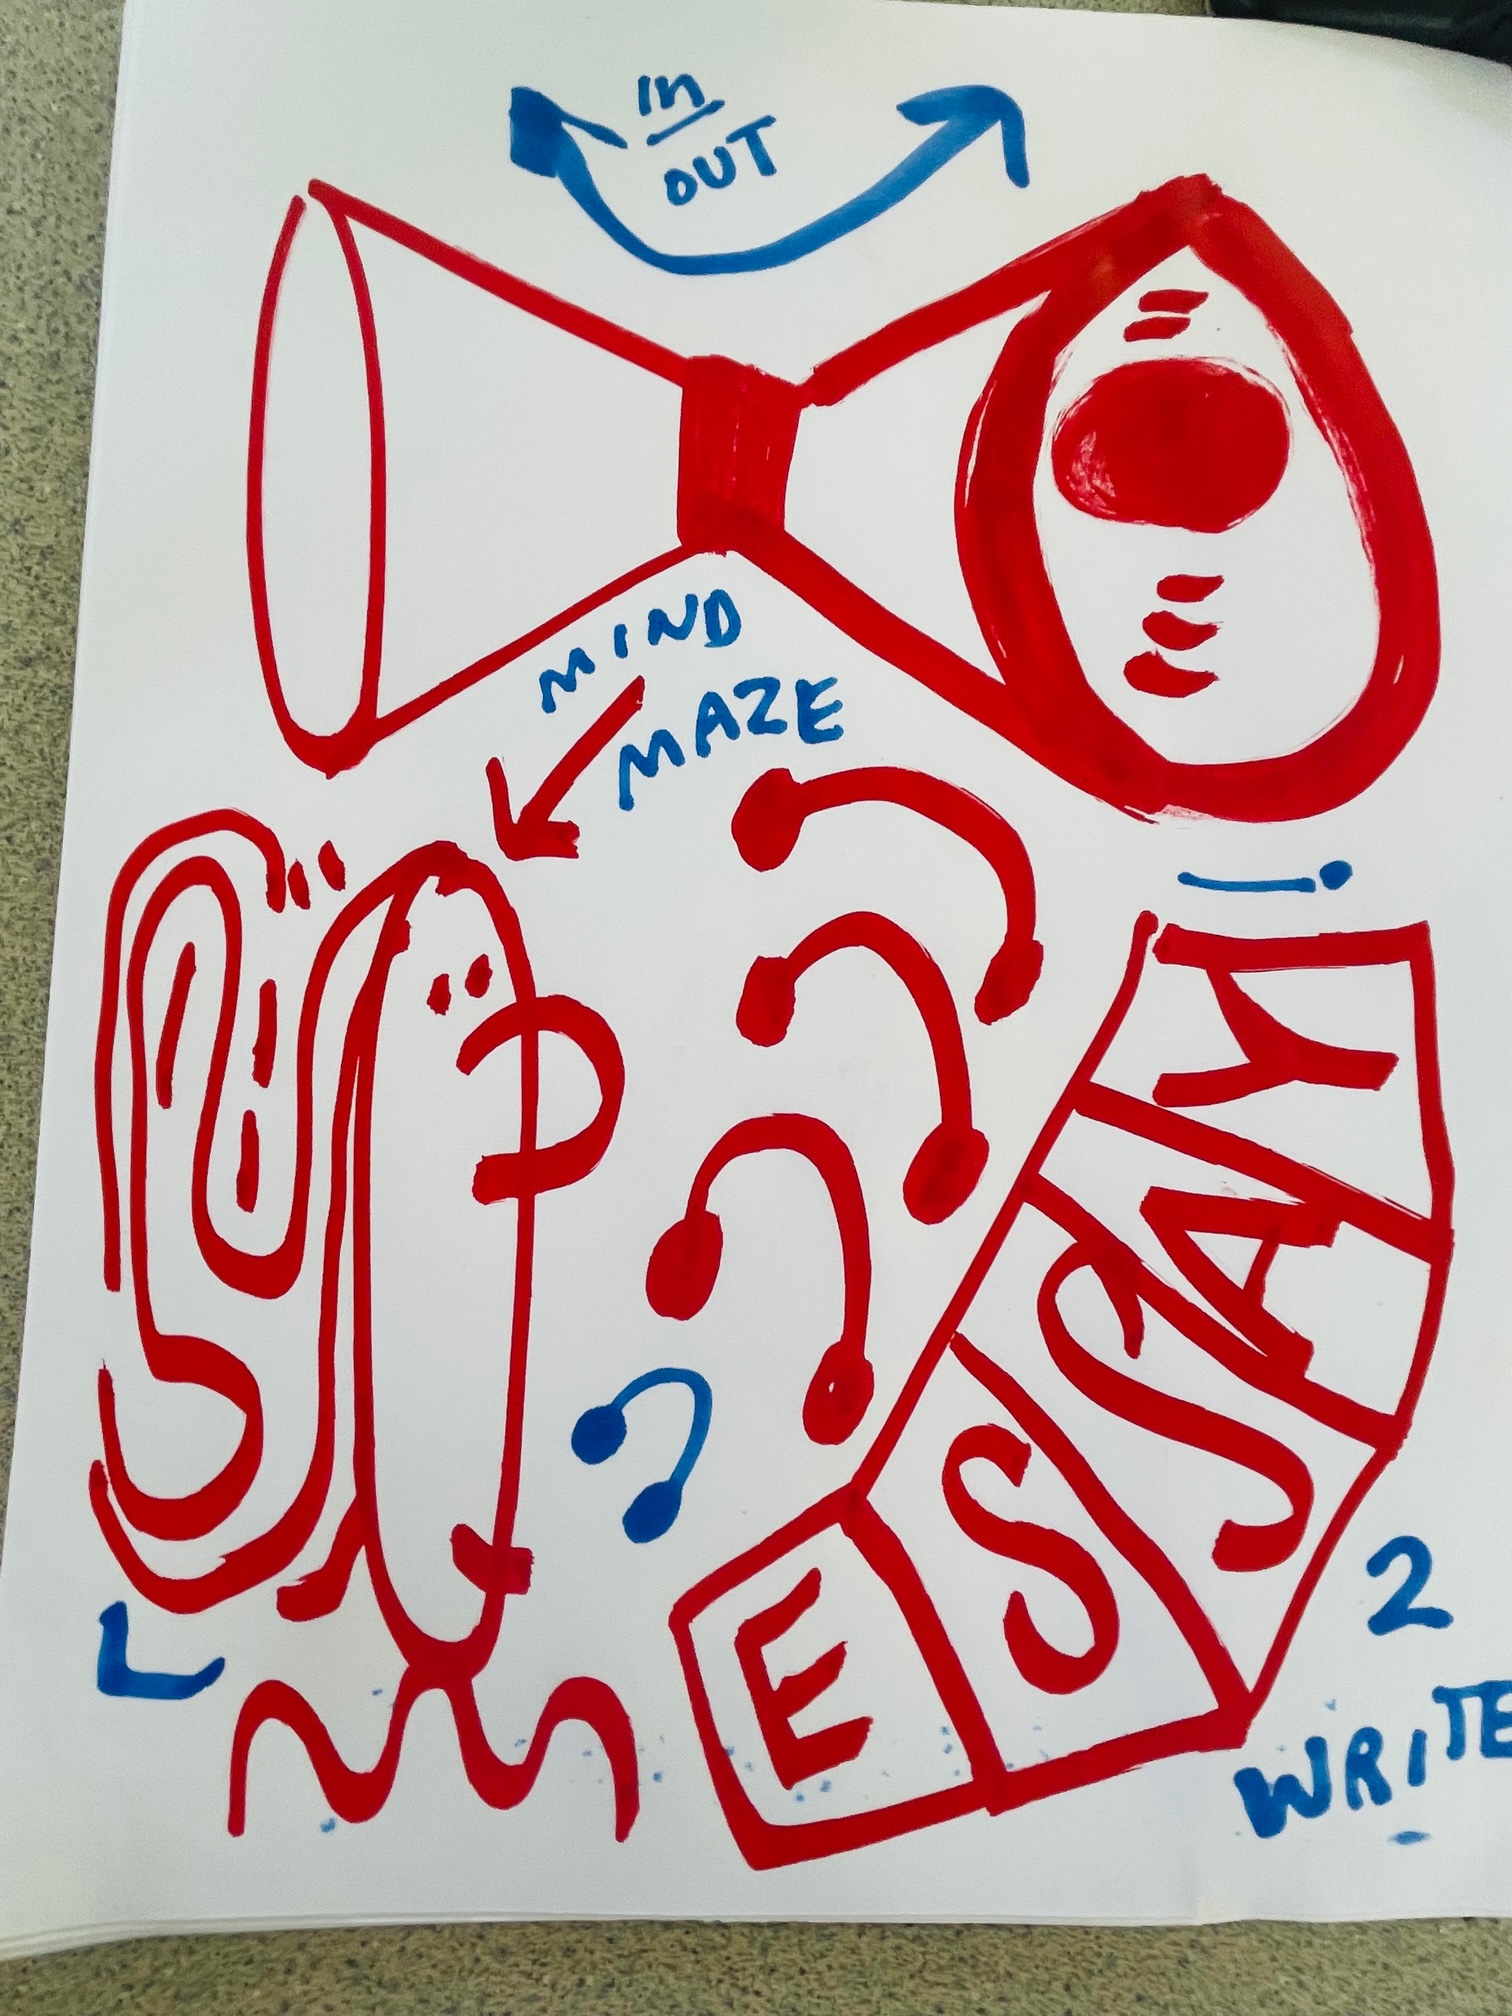 In
OUT
MIND
MAZE
ESSAY
2
WRITE